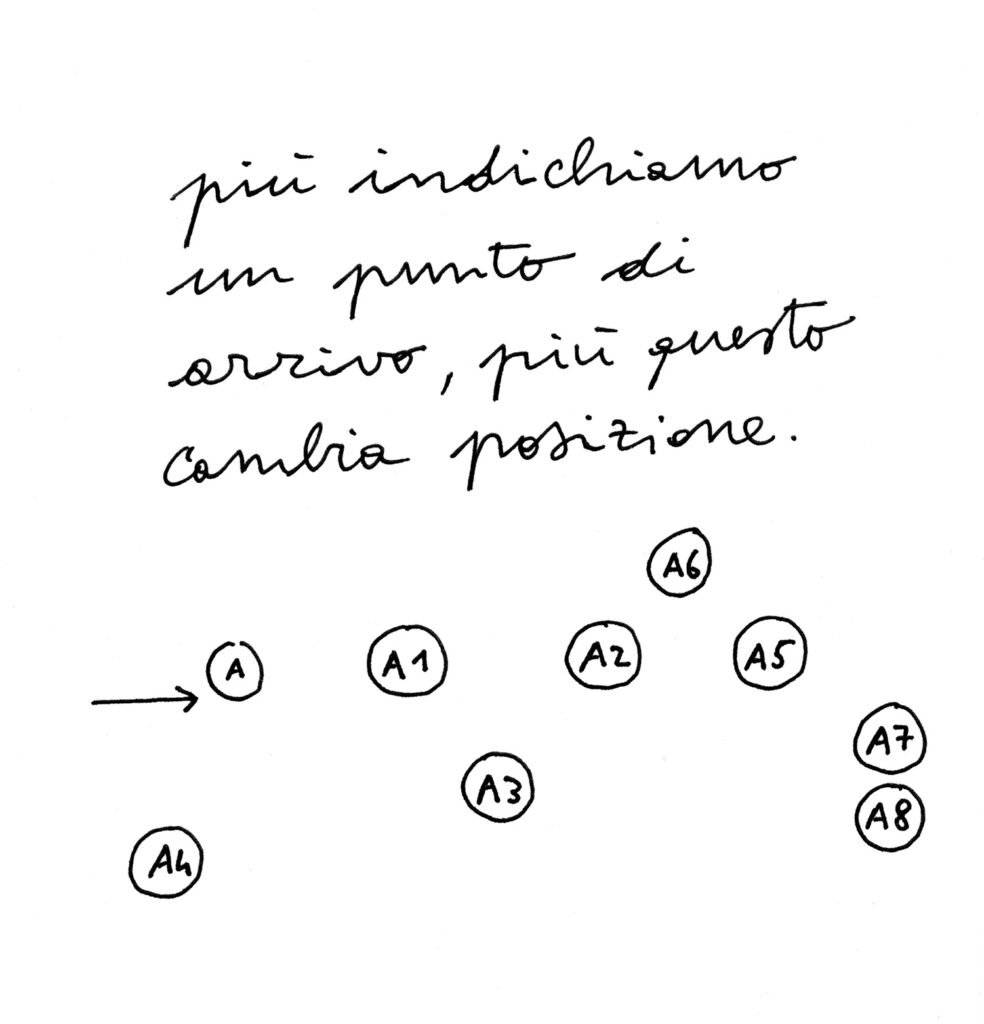 più indichiamo
un punto di
arrivo, più questo
cambia posizione.
A6
A A1 A2 A5
A7
A3
A8
A4